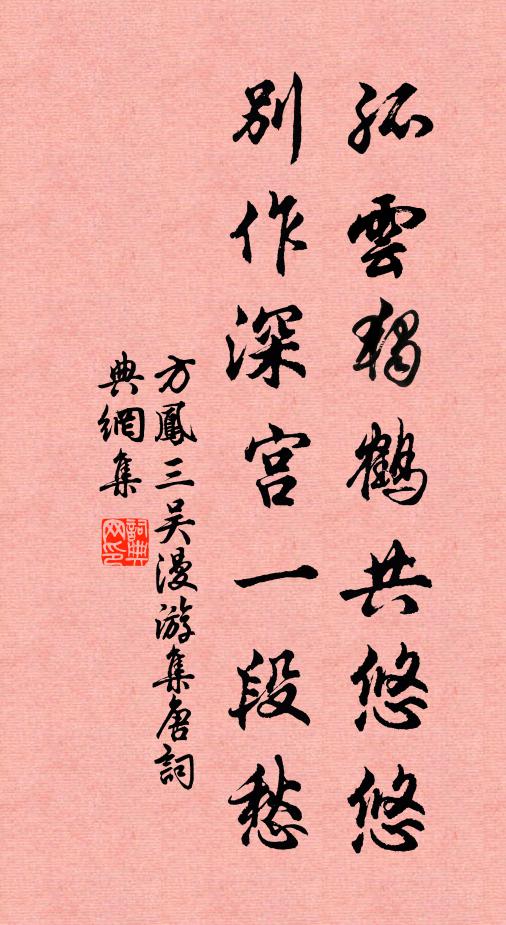 孤雲獨鶴共悠悠
別作深宮一段愁
方鳳三吴漫游集唐詞
典網集
詞典
网印